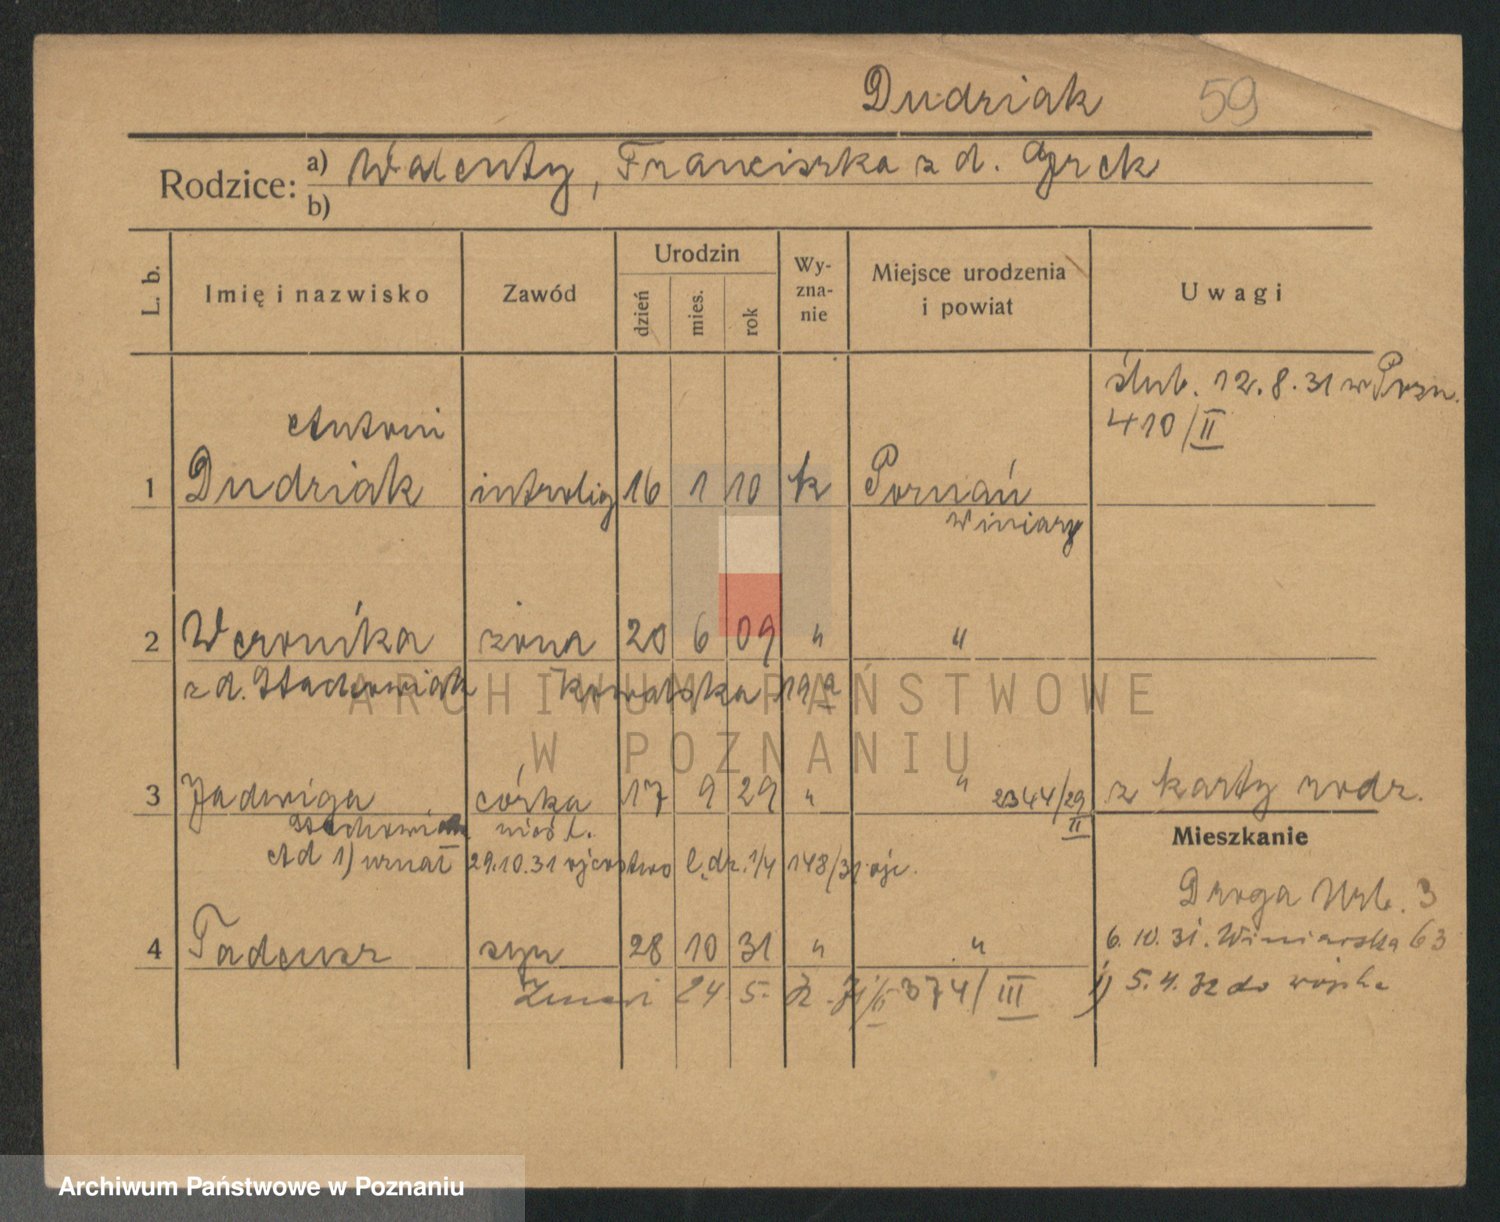 Dudziak 59
Rodzice: a) Walenty, Franciszka z d. Grek
b)
L. b. Imię i nazwisko Zawód Urodzin dzień mies. rok Wyznanie Miejsce urodzenia i powiat Uwagi
ślub. 12.8.31 w Pozn.
410/II
Antoni
1 Dudziak introlig 16 1 10 k Poznań
Winiary
2 Weronika żona 20 6 09 " "
z d. Stachowiak Kowalska
ARCHIWUM PAŃSTWOWE
W POZNANIU
3 Jadwiga córka 17 9 29 " " 2344/29 II z karty rodz.
Stachowiak nieśl.
Ad 1) uznał 29.10.31 ojcostwo l. dz. 1/4 148/31 ojc.
Mieszkanie
Droga Urb. 3
4 Tadeusz syn 28 10 31 " "
6.10.31. Winiarska 63
24 5. 374/III
1) 5.4.32 do wojska
Archiwum Państwowe w Poznaniu